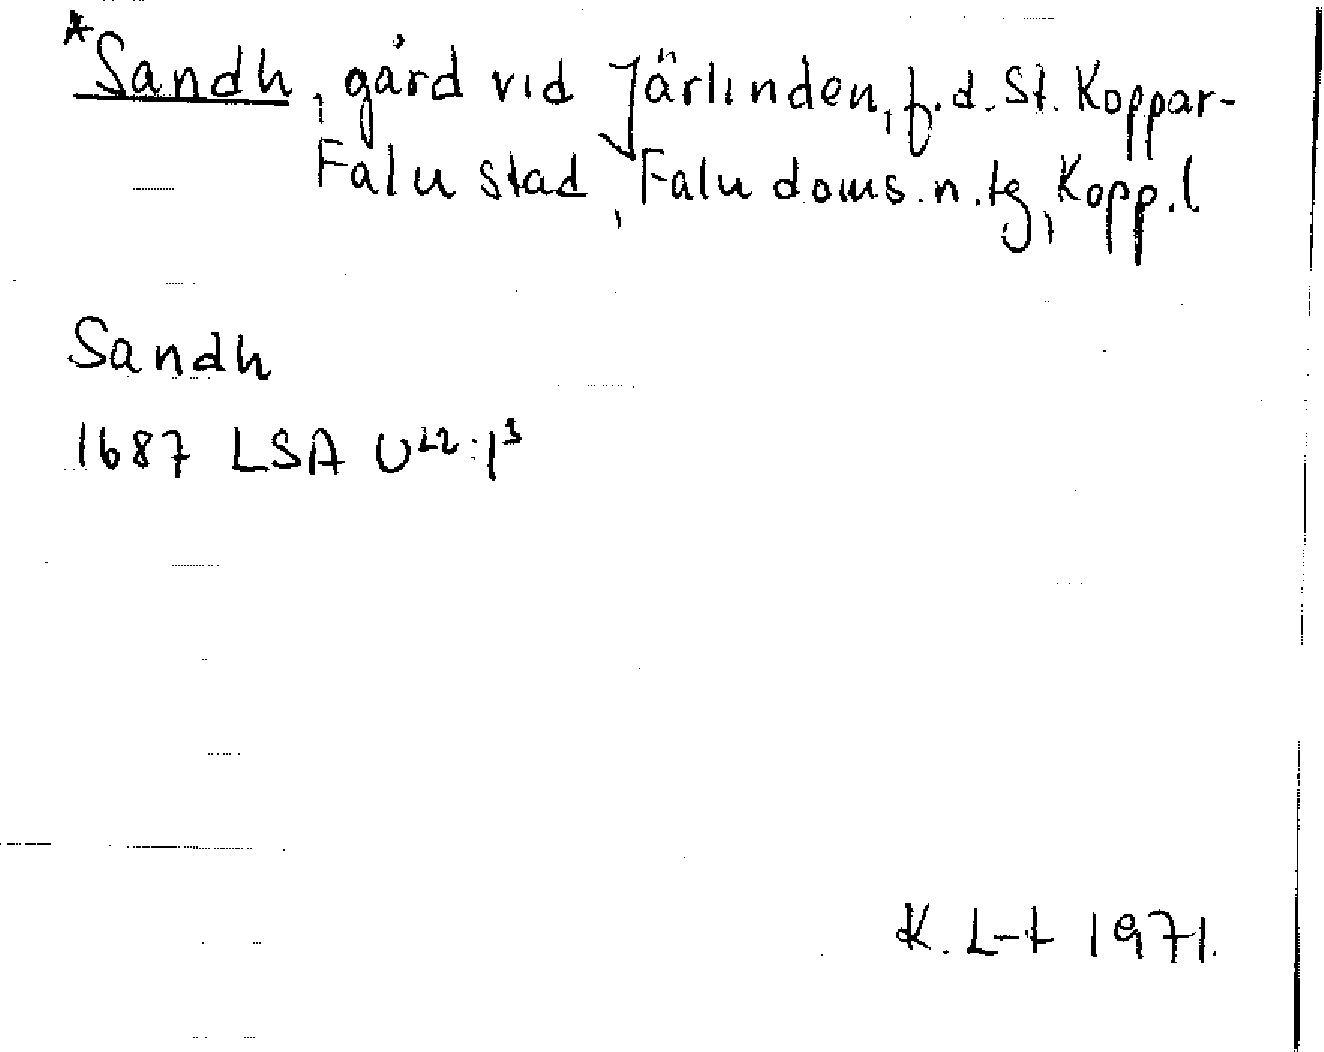 *Sandh, gård vid Järlinden, f.d. St. Koppar-
Falu stad, Falu doms. n. tg, Kopp. l
Sandh
1687 LSA U22:1³
K. L-t 1971.